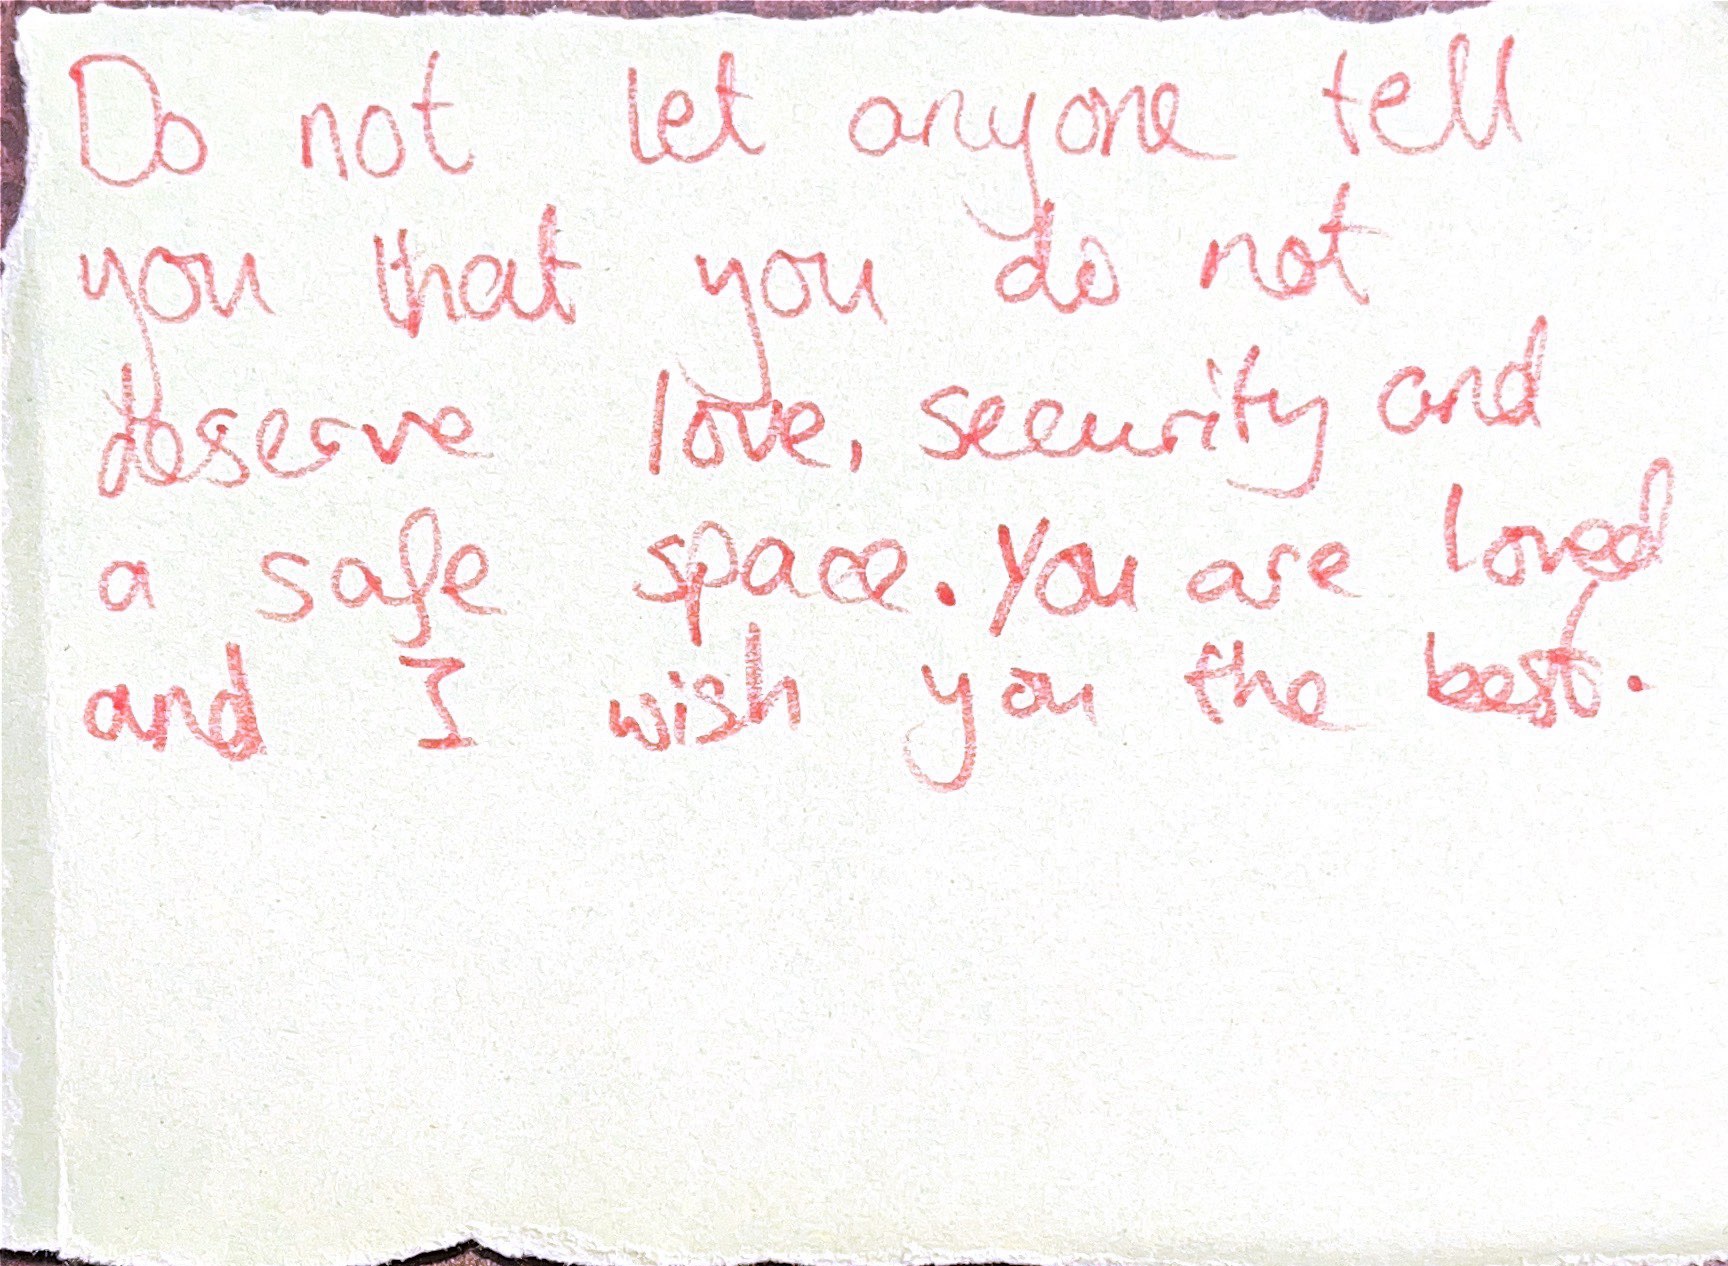 Do not let anyone tell
you that you do not
deserve love, security and
a safe space. You are loved
and I wish you the best.